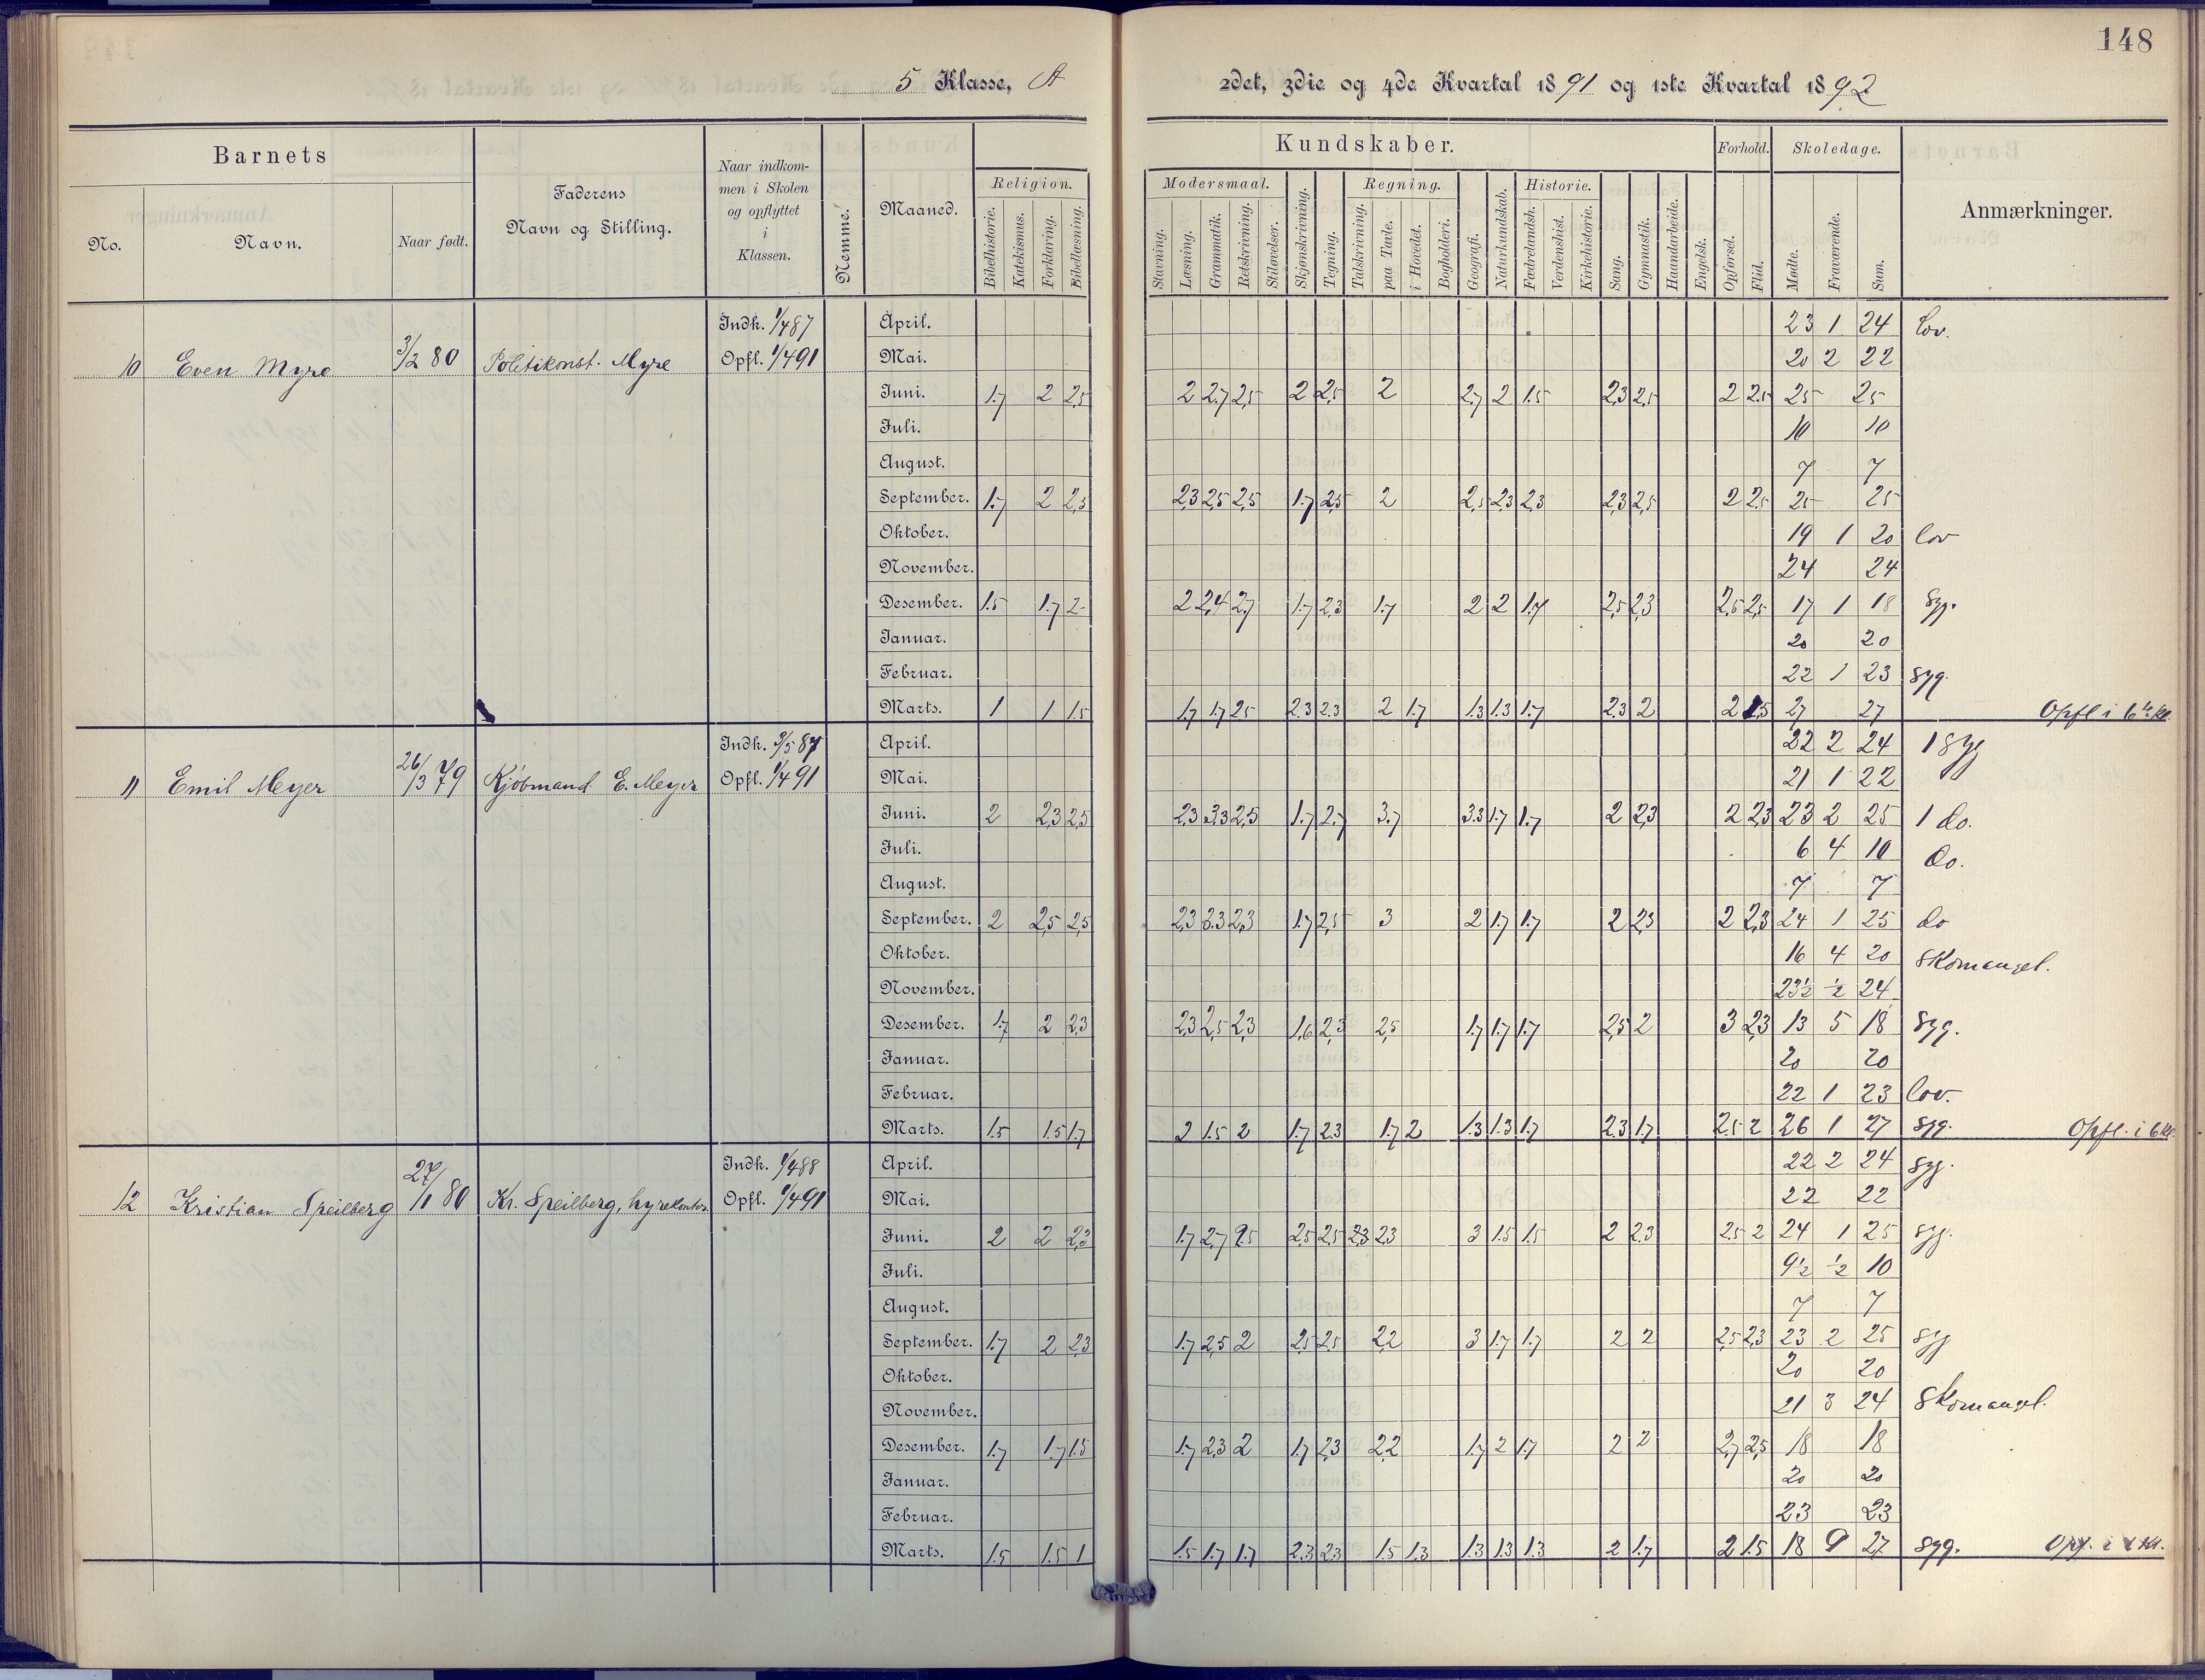 148
5 Klasse, A 2det, 3die og 4de Kvartal 1891 og 1ste Kvartal 1892
Barnets Kundskaber. Forhold. Skoledage.
No. Navn. Naar født. Faderens Navn og Stilling. Naar indkommen i Skolen og opflyttet i Klassen. Nemme. Maaned. Religion. Modersmaal. Regning. Historie. Anmærkninger.
Bibelhistorie. Katekismus. Forklaring. Bibellæsning. Stavning. Læsning. Grammatik. Retskrivning. Stiløvelser. Skjønskrivning. Tegning. Talskrivning. paa Tavle. i Hovedet. Bogholderi. Geografi. Naturkundskab. Fædrelandsh. Verdenshist. Kirkehistorie. Sang. Gymnastik. Haandarbeide. Engelsk. Opførsel. Flid. Mødte. Fraværende. Sum.
Indh. 1/4 87 April. 23 1 24 Lov.
10 Even Myre 3/2 80 Politikonst. Myre Opfl. 1/4 91 Mai. 20 2 22
Juni. 1.7 2 2,5 2 2.7 2,5 2 2,5 2 2,7 2 1.5 2,3 2,5 2 2.5 25 25
Juli. 10 10
August. 7 7
September. 1.7 2 2,5 2,3 2,5 2,5 1.7 2,5 2 2,5 2,3 2,3 2,3 2,5 2 2,5 25 25
Oktober. 19 1 20 lov
November. 24 24
Desember. 1.5 1.7 2 2 2,4 2,7 1.7 2.3 1.7 2 2 1.7 2,5 2,3 2,5 2,5 17 1 18 Syg.
Januar. 20 20
Februar. 22 1 23 Syg.
Marts. 1 1 1.5 1.7 1.7 2.5 2.3 2.3 2 1.7 1.3 1.3 1.7 2.3 2 2 1.5 27 27 Opfl i 6te kl.
Indh. 3/5 87 April. 22 2 24 1 Syg
11 Emil Meyer 26/3 79 Kjøbmand E. Meyer Opfl. 1/4 91 Mai. 21 1 22
Juni. 2 2,3 2,5 2,3 3.3 2,5 1.7 2.7 3.7 3.3 1.7 1.7 2 2,3 2 2,3 23 2 25 1 do.
Juli. 6 4 10 do.
August. 7 7
September. 2 2,5 2,5 2,3 3.3 2,3 1.7 2,5 3 2 1.7 1.7 2 2,3 2 2,3 24 1 25 do
Oktober. 16 4 20 Skomangel.
November. 23½ ½ 24
Desember. 1.7 2 2,3 2,3 2,5 2,3 1,6 2,3 2,5 1.7 1.7 1.7 2,5 2 3 2,3 13 5 18 Syg.
Januar. 20 20
Februar. 22 1 23 lov.
Marts. 1.5 1.5 1.7 2 1.5 2 1.7 2.3 1.7 2 1.3 1.3 1.7 2.3 1.7 2.5 2 26 1 27 Syg. Opfl. i 6 kl.
Indh. 1/4 88 April. 22 2 24 Syg.
12 Kristian Speilberg 27/1 80 Kr. Speilberg, hyrekontor. Opfl. 1/4 91 Mai. 22 22
Juni. 2 2 2,3 1.7 2,7 2.5 2,5 2,5 2,3 2,3 3 1.5 1.5 2 2.3 2.5 2 24 1 25 Syg.
Juli. 9½ ½ 10
August. 7 7
September. 1.7 2 2,3 1.7 2,5 2 2,5 2,5 2,2 3 1.7 1.7 2 2 2,5 2,3 23 2 25 Syg
Oktober. 20 20
November. 21 3 24 Skomangel.
Desember. 1.7 1.7 1.5 1.7 2,3 2 1.7 2,3 2,2 1.7 2 1.7 2 2 2,7 2,5 18 18
Januar. 20 20
Februar. 23 23
Marts. 1.5 1.5 1 1.5 1.7 1.7 2.3 2.3 1.5 1.3 1.3 1.3 1.3 2 1.7 2 1.5 18 9 27 Syg.